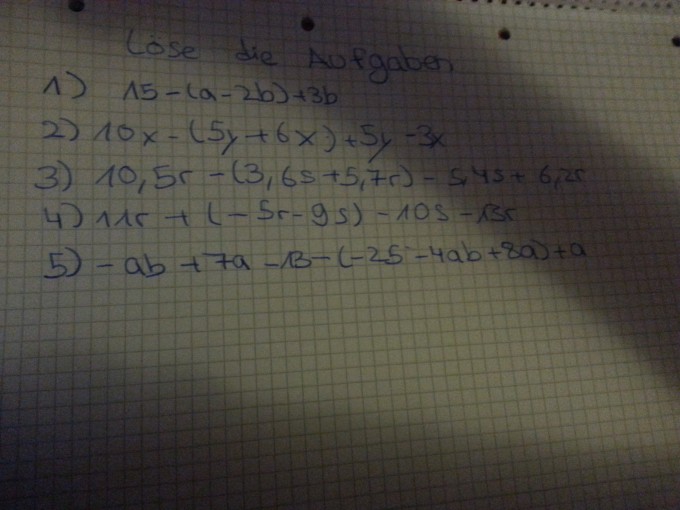 Löse die Aufgaben
1) 15-(a-2b)+3b
2) 10x-(5y+6x)+5y-3x
3) 10,5r-(3,6s+5,7r)-5,4s+6,2r
4) 11r+(-5r-9s)-10s-13r
5) -ab+7a-13-(-25-4ab+8a)+a